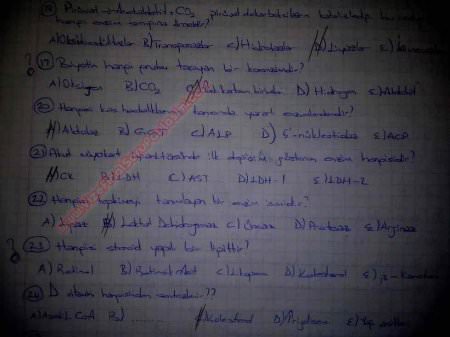 18) Pirüvat → Asetaldehit + CO2 pirüvat dekarboksilazın katalizlediği bu
hangi enzim sınıfına örnektir?
A) Oksidoredüktazlar B) Transferazlar C) Hidrolazlar D) Liyazlar E) İzomerazlar
? 19) Biyotin hangi grubu taşıyan bir koenzimdir?
A) Oksijen B) CO2 D) Hidrojen E) Aldehit
20) Hangisi kas hastalıklarının tanısında yararlı enzimlerdendir?
A) Aldolaz B) GGT C) ALP D) 5'-nükleotidaz E) ACP
21) Akut miyokart infarktüsünde ilk değişimi gösteren enzim hangisidir?
A) CK B) LDH C) AST D) LDH-1 E) LDH-2
22) Hangisi tepkimeyi tanımlayan bir enzim ismidir?
A) Lipaz B) Laktat Dehidrogenaz C) Üreaz D) Proteaz E) Arjinaz
? 23) Hangisi steroid yapılı bir lipittir?
A) Retinal B) Retinoik Asit C) Likopen D) Kolesterol E) β-Karoten
24) D vitamini hangisinden sentezlenir??
A) Asetil CoA B) ........ C) Kolesterol D) Trigliserit E) Yağ asitleri